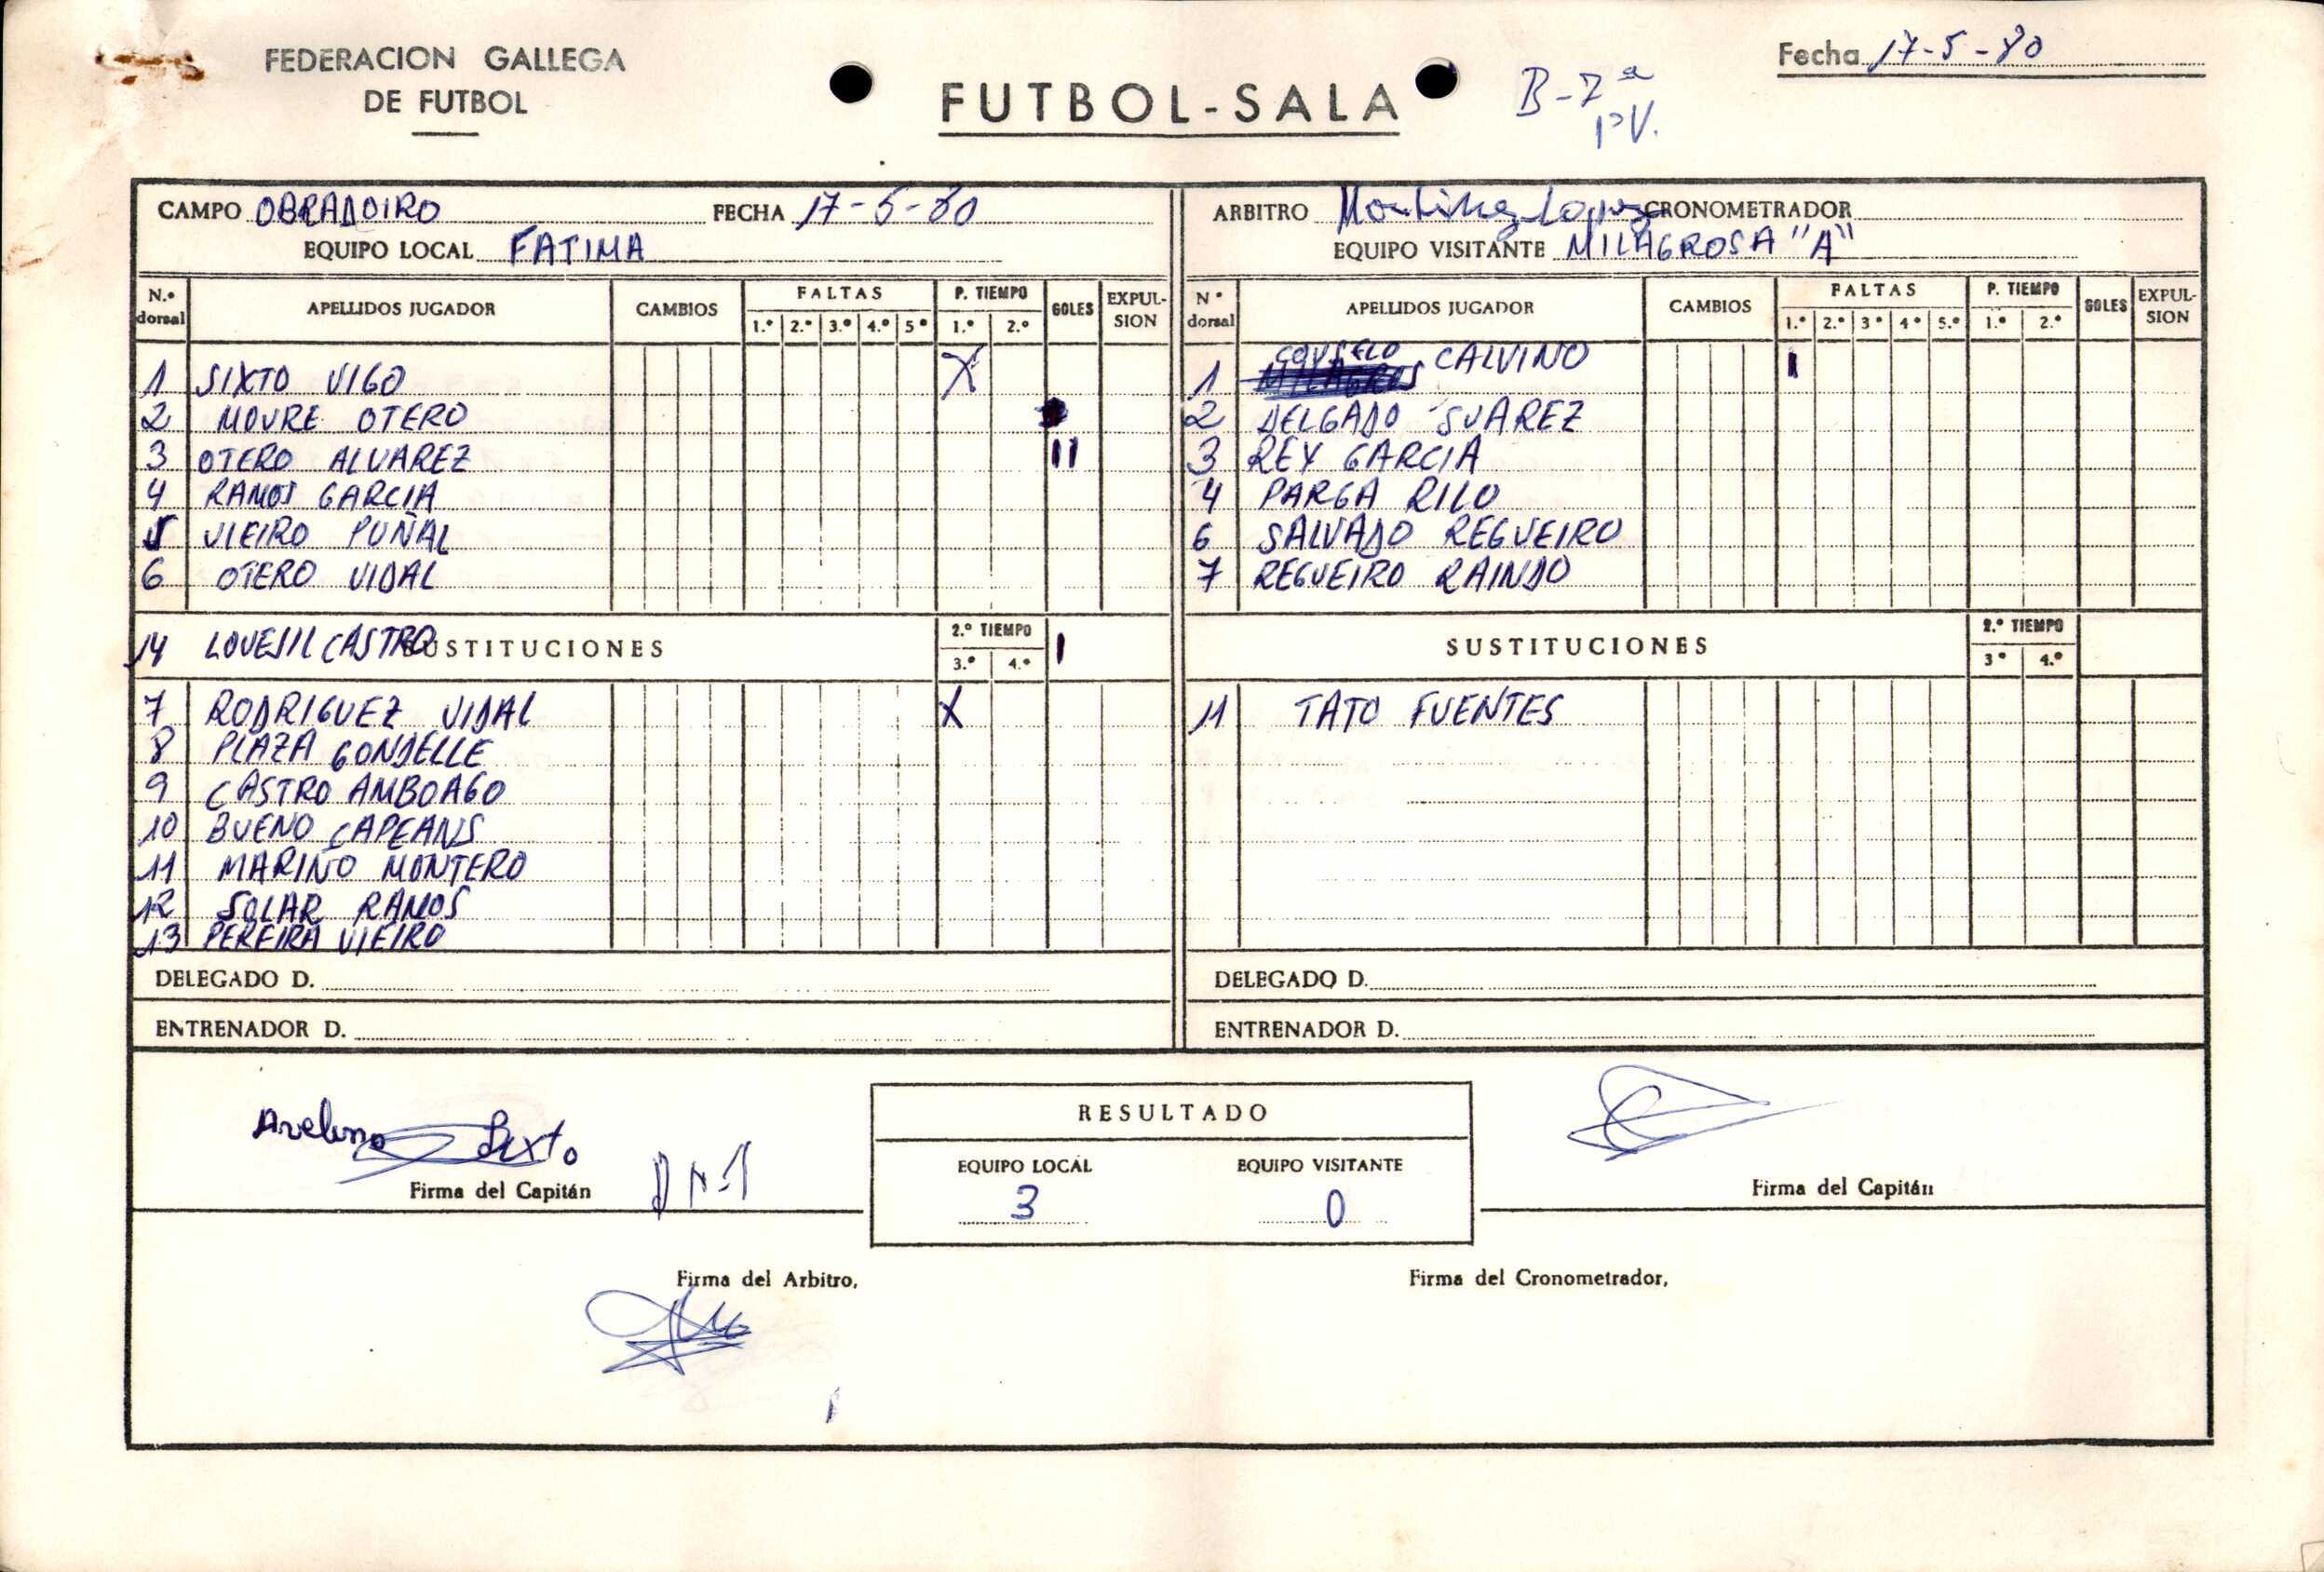 FEDERACION GALLEGA
DE FUTBOL
FUTBOL-SALA
B-7ª
PV.
Fecha 17-5-80
CAMPO OBRADOIRO FECHA 17-5-80
EQUIPO LOCAL FATIMA
ARBITRO Martinez Lopez CRONOMETRADOR
EQUIPO VISITANTE MILAGROSA "A"
N.º dorsal APELLIDOS JUGADOR CAMBIOS FALTAS 1.º 2.º 3.º 4.º 5º P. TIEMPO 1.º 2.º GOLES EXPULSION
1 SIXTO VIGO X
2 MOURE OTERO
3 OTERO ALVAREZ II
4 RAMOS GARCIA
5 VIEIRO PUÑAL
6 OTERO VIDAL
14 LOVESIL CASTRO SUSTITUCIONES 2.º TIEMPO 3.º 4.º I
7 RODRIGUEZ VIDAL X
8 PLAZA GONDELLE
9 CASTRO AMBOAGO
10 BUENO CAPEANS
11 MARIÑO MONTERO
12 SOLAR RAMOS
13 PEREIRA VIEIRO
DELEGADO D.
ENTRENADOR D.
Nº dorsal APELLIDOS JUGADOR CAMBIOS FALTAS 1.º 2.º 3º 4º 5.º P. TIEMPO 1.º 2.º GOLES EXPULSION
1 COUSELO CALVINO I
2 DELGADO SUAREZ
3 REY GARCIA
4 PARGA RILO
6 SALVADO REGUEIRO
7 REGUEIRO RAINDO
SUSTITUCIONES 2.º TIEMPO 3º 4.º
11 TATO FUENTES
DELEGADO D.
ENTRENADOR D.
Avelino Sixto
Firma del Capitán
RESULTADO
EQUIPO LOCAL EQUIPO VISITANTE
3 0
Firma del Capitán
Firma del Arbitro,
Firma del Cronometrador,